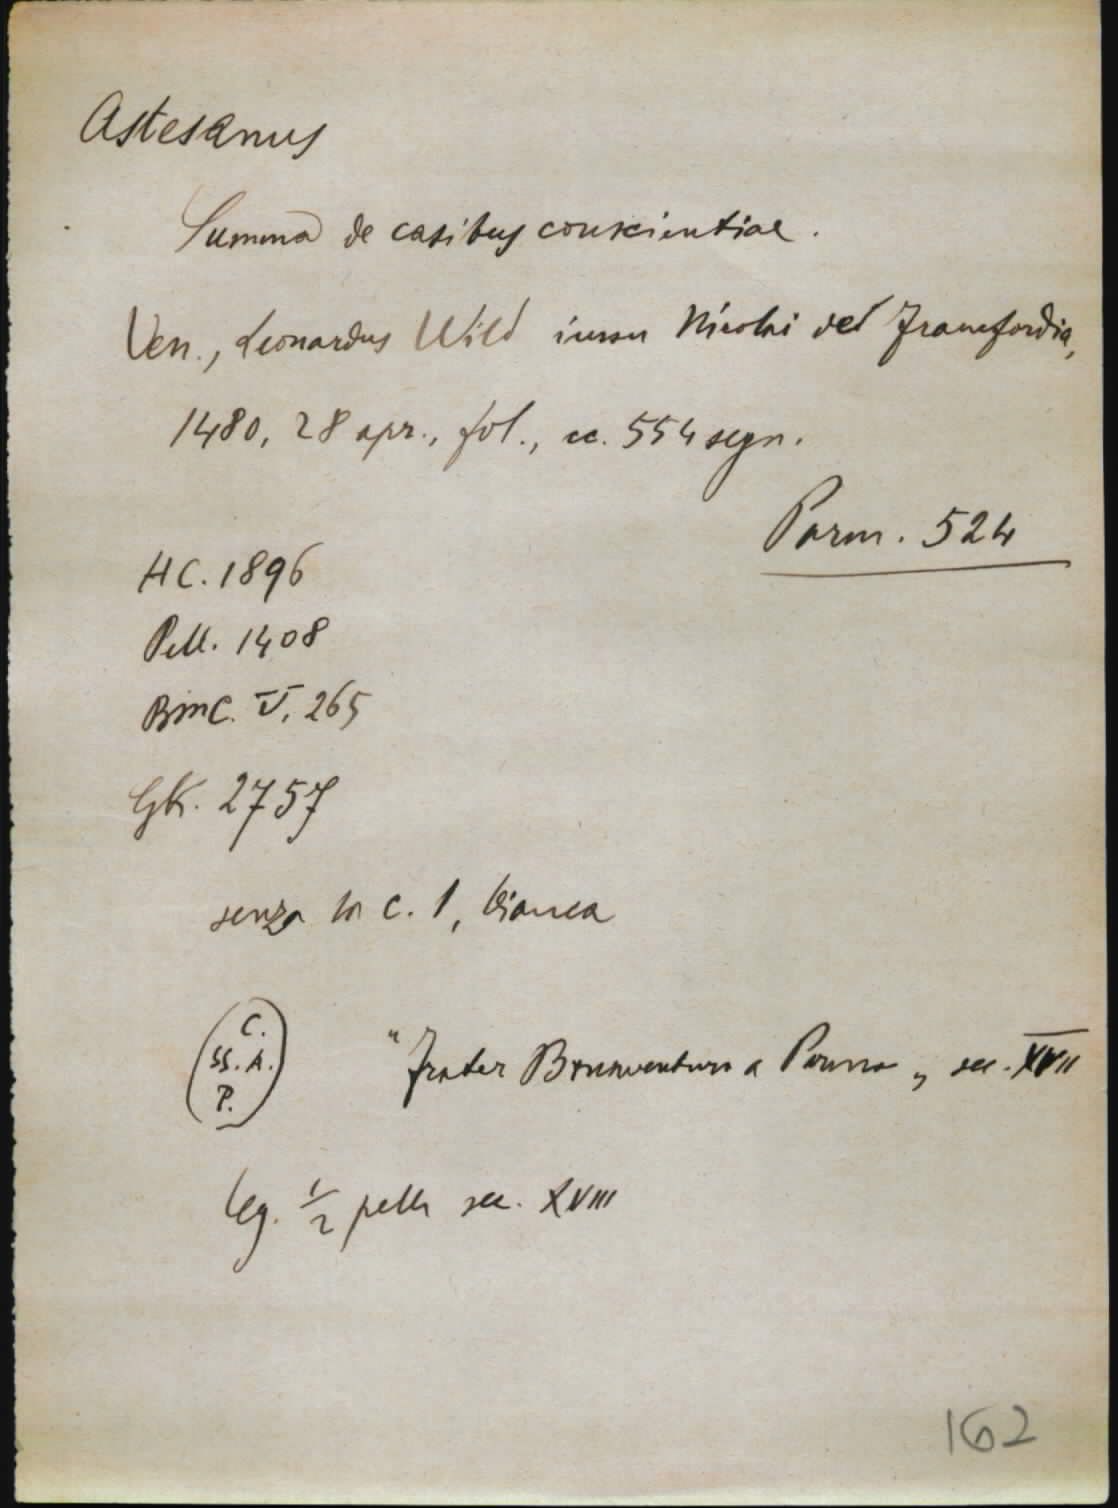 Astesanus
Summa de casibus conscientiae.
Ven., Leonardus Wild iussu Nicolai de Francfordia,
1480, 28 apr., fol., cc. 554 segn.
Parm. 524
HC. 1896
Pell. 1408
BMC. V. 265
GK. 2757
senza la c. 1, bianca
C.
SS. A.
P.
"Frater Bonaventura a Parma„ sec. XVII
leg. 1/2 pelle sec. XVIII
162